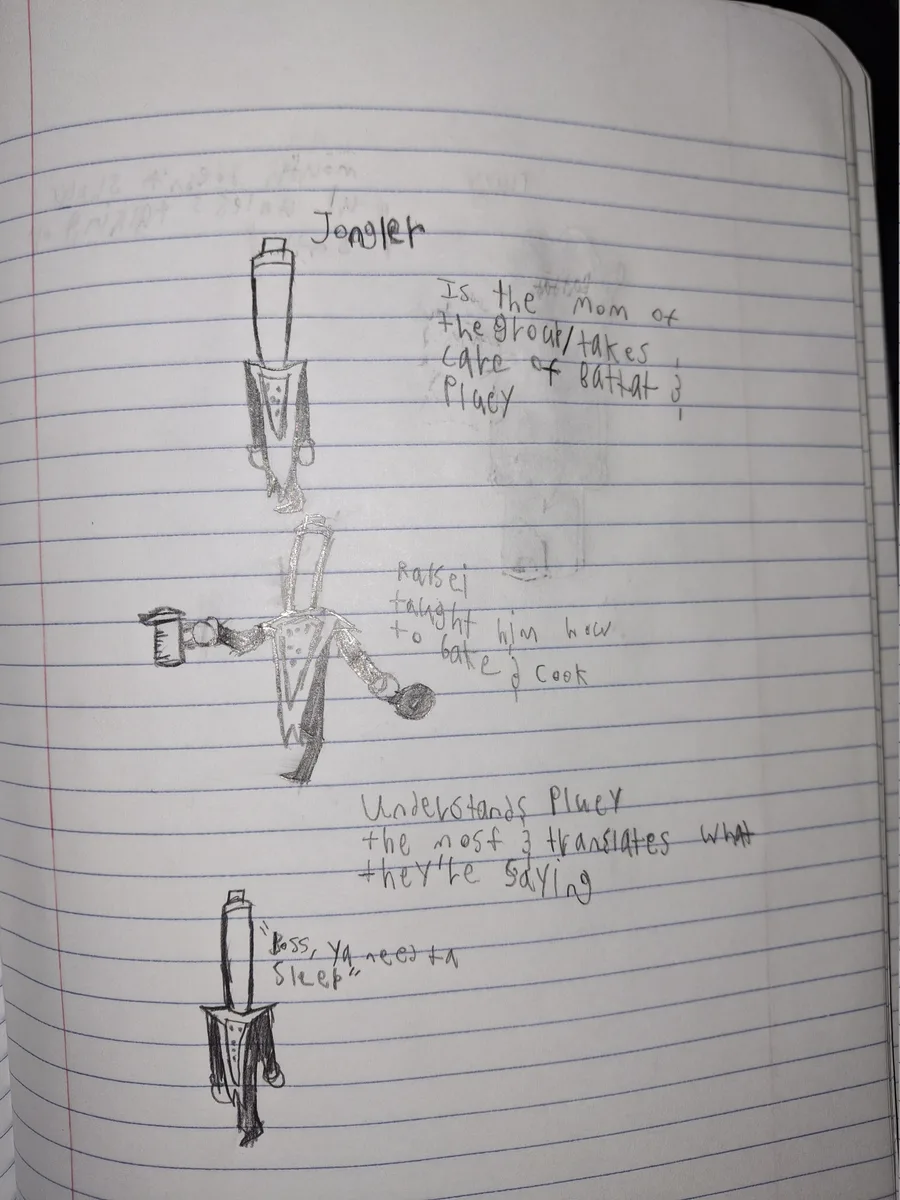 Jongler
Is the mom of
the group/takes
care of Battat &
Pluey
Ralsei
taught him how
to bake & cook
Understands Pluey
the most & translates what
they're saying
"Boss, ya need ta
sleep"